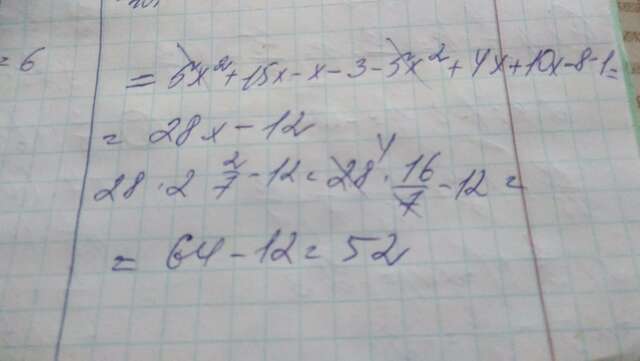 = 6
= 5x² + 15x - x - 3 - 5x² + 4x + 10x - 8 - 1 =
= 28x - 12
28 · 2 2/7 - 12 = 28 · 16/7 - 12 =
= 64 - 12 = 52